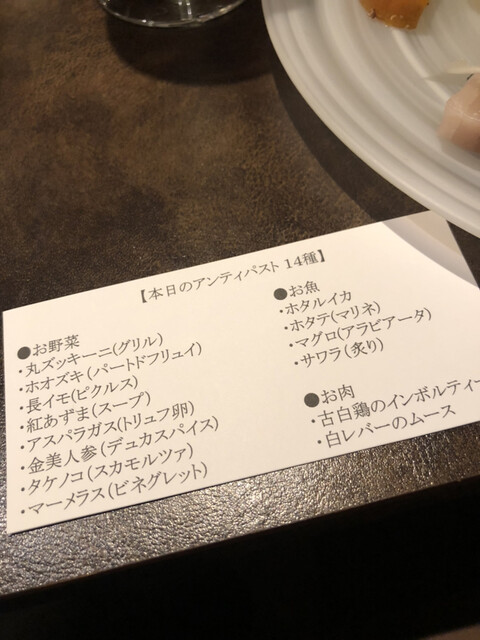 【本日のアンティパスト 14種】
●お野菜
・丸ズッキーニ(グリル)
・ホオズキ(パートドフリュイ)
・長イモ(ピクルス)
・紅あずま(スープ)
・アスパラガス(トリュフ卵)
・金美人参(デュカスパイス)
・タケノコ(スカモルツァ)
・マーメラス(ビネグレット)
●お魚
・ホタルイカ
・ホタテ(マリネ)
・マグロ(アラビアータ)
・サワラ(炙り)
●お肉
・古白鶏のインボルティー
・白レバーのムース